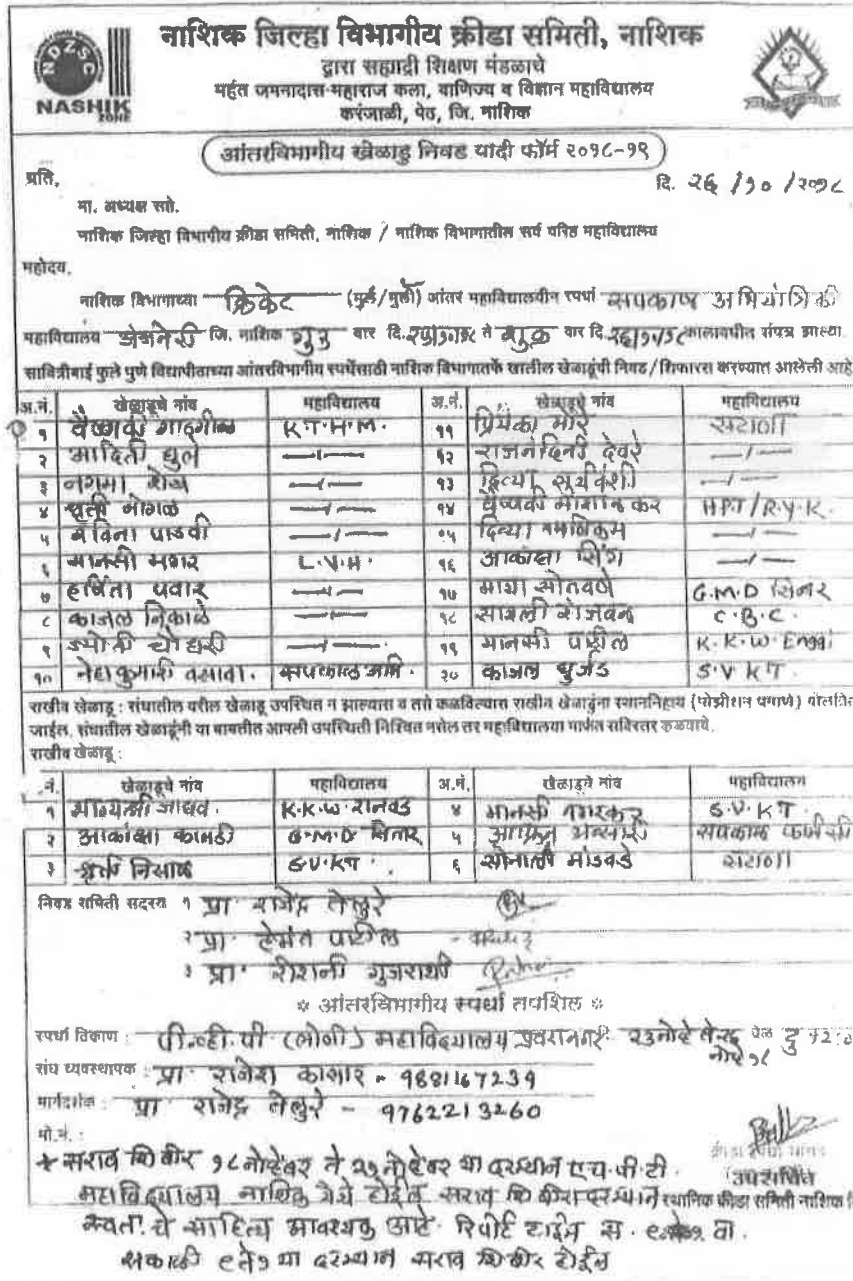 नाशिक जिल्हा विभागीय क्रीडा समिती, नाशिक
द्वारा सह्याद्री शिक्षण मंडळाचे
महंत जमनादास महाराज कला, वाणिज्य व विज्ञान महाविद्यालय
करंजाळी, पेठ, जि. नाशिक
NDZSC
NASHIK
ZONE
आंतरविभागीय खेळाडु निवड यादी फॉर्म २०१८-१९
प्रति,
दि. २६ /१० /२०१८
मा. अध्यक्ष सो.
नाशिक जिल्हा विभागीय क्रीडा समिती, नाशिक / नाशिक विभागातील सर्व वरिष्ठ महाविद्यालय
महोदय,
नाशिक विभागाच्या क्रिकेट (मुले/मुली) आंतर महाविद्यालयीन स्पर्धा सपकाळ अभियांत्रिकी
महाविद्यालय अंजनेरी जि. नाशिक गुरु वार दि. ते शुक्र वार दि. कालावधीत संपन्न झाल्या.
सावित्रीबाई फुले पुणे विद्यापीठाच्या आंतरविभागीय स्पर्धेसाठी नाशिक विभागातर्फे खालील खेळाडूंची निवड/शिफारस करण्यात आलेली आहे
अ.नं. खेळाडूचे नांव महाविद्यालय अ.नं. खेळाडूचे नांव महाविद्यालय
१ वैष्णवी गाडगीळ K.T.H.M. ११ प्रियंका मोरे सटाणा
२ आदिती घुले —〃— १२ राजनंदिनी देवरे —〃—
३ नगमा शेख —〃— १३ दिव्या सूर्यवंशी —〃—
४ श्रुती मोगळ —〃— १४ वैष्णवी HPT/R.Y.K.
५ पाडवी —〃— १५ दिव्या —〃—
६ मानसी मगर L.V.H. १६ आकांक्षा सिंग —〃—
७ हर्षिता पवार —〃— १७ माया सोनवणे G.M.D सिन्नर
८ काजल निकाळे —〃— १८ सायली C.B.C.
९ ज्योती चौधरी —〃— १९ मानसी पाटील K.K.W. Engg
१० नेहाकुमारी वसावा. सपकाळ अभि. २० काजल घुर्जड S.V KT.
राखीव खेळाडू : संघातील वरील खेळाडू उपस्थित न झाल्यास व तसे कळविल्यास राखीव खेळाडुंना स्थाननिहाय (पोझीशन प्रमाणे)
जाईल. संघातील खेळाडूंनी या बाबतीत आपली उपस्थिती निश्चित नसेल तर महाविद्यालया मार्फत सविस्तर कळवावे.
राखीव खेळाडू :
.नं. खेळाडूचे नांव महाविद्यालय अ.नं. खेळाडूचे नांव महाविद्यालय
१ भाग्यश्री जाधव. K.K.W. रानवड ४ मानसी S.V.KT.
२ आकांक्षा G.M.D सिन्नर ५ सपकाळ
३ श्रुती निसाळ S.V.KT. ६ सोनाली मांडवडे सटाणा
निवड समिती सदस्य १ प्रा. राजेंद्र तेलुरे
२ प्रा. हेमंत पाटील
३ प्रा. रोशनी गुजराथी
आंतरविभागीय स्पर्धा तपशिल
स्पर्धा ठिकाण : पी.व्ही.पी (लोणी) महाविद्यालय प्रवरानगर २३नोव्हे ते वेळ दु १२:
संघ व्यवस्थापक : प्रा. राजेश कासार - 9881167239
मार्गदर्शक : प्रा. राजेंद्र तेलुरे - 9762213260
मो.नं. :
* सराव शिबीर १८ नोव्हेंबर ते २१ नोव्हेंबर या दरम्यान एच.पी.टी.
महाविद्यालय नाशिक येथे होईल सराव शिबीरा दरम्यान
उपसचिव
स्थानिक क्रीडा समिती नाशिक
स्वतःचे साहित्य आवश्यक आहे. रिपोर्ट टाईम स. वा.
सकाळी ९ ते १ या दरम्यान सराव शिबीर होईल